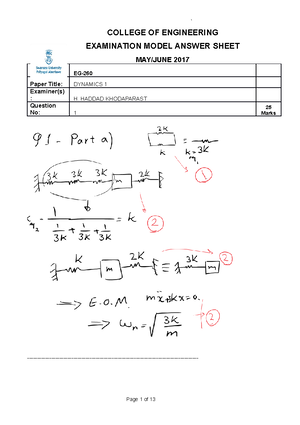 COLLEGE OF ENGINEERING
EXAMINATION MODEL ANSWER SHEET
MAY/JUNE 2017
Swansea University
Prifysgol Abertawe
EG-260
Paper Title: DYNAMICS 1
Examiner(s)
: H. HADDAD KHODAPARAST
Question
No: 1
25
Marks
Q1 - Part a)
3K
k
=
k = 3K
1
3K 3K 3K m 2K
1 / (1/3K + 1/3K + 1/3K) = K
2
K m 2K ≡ 3K m
2
⇒ E.O.M. mẍ+3Kx=0.
⇒ ωn = √(3K/m)
2
Page 1 of 13